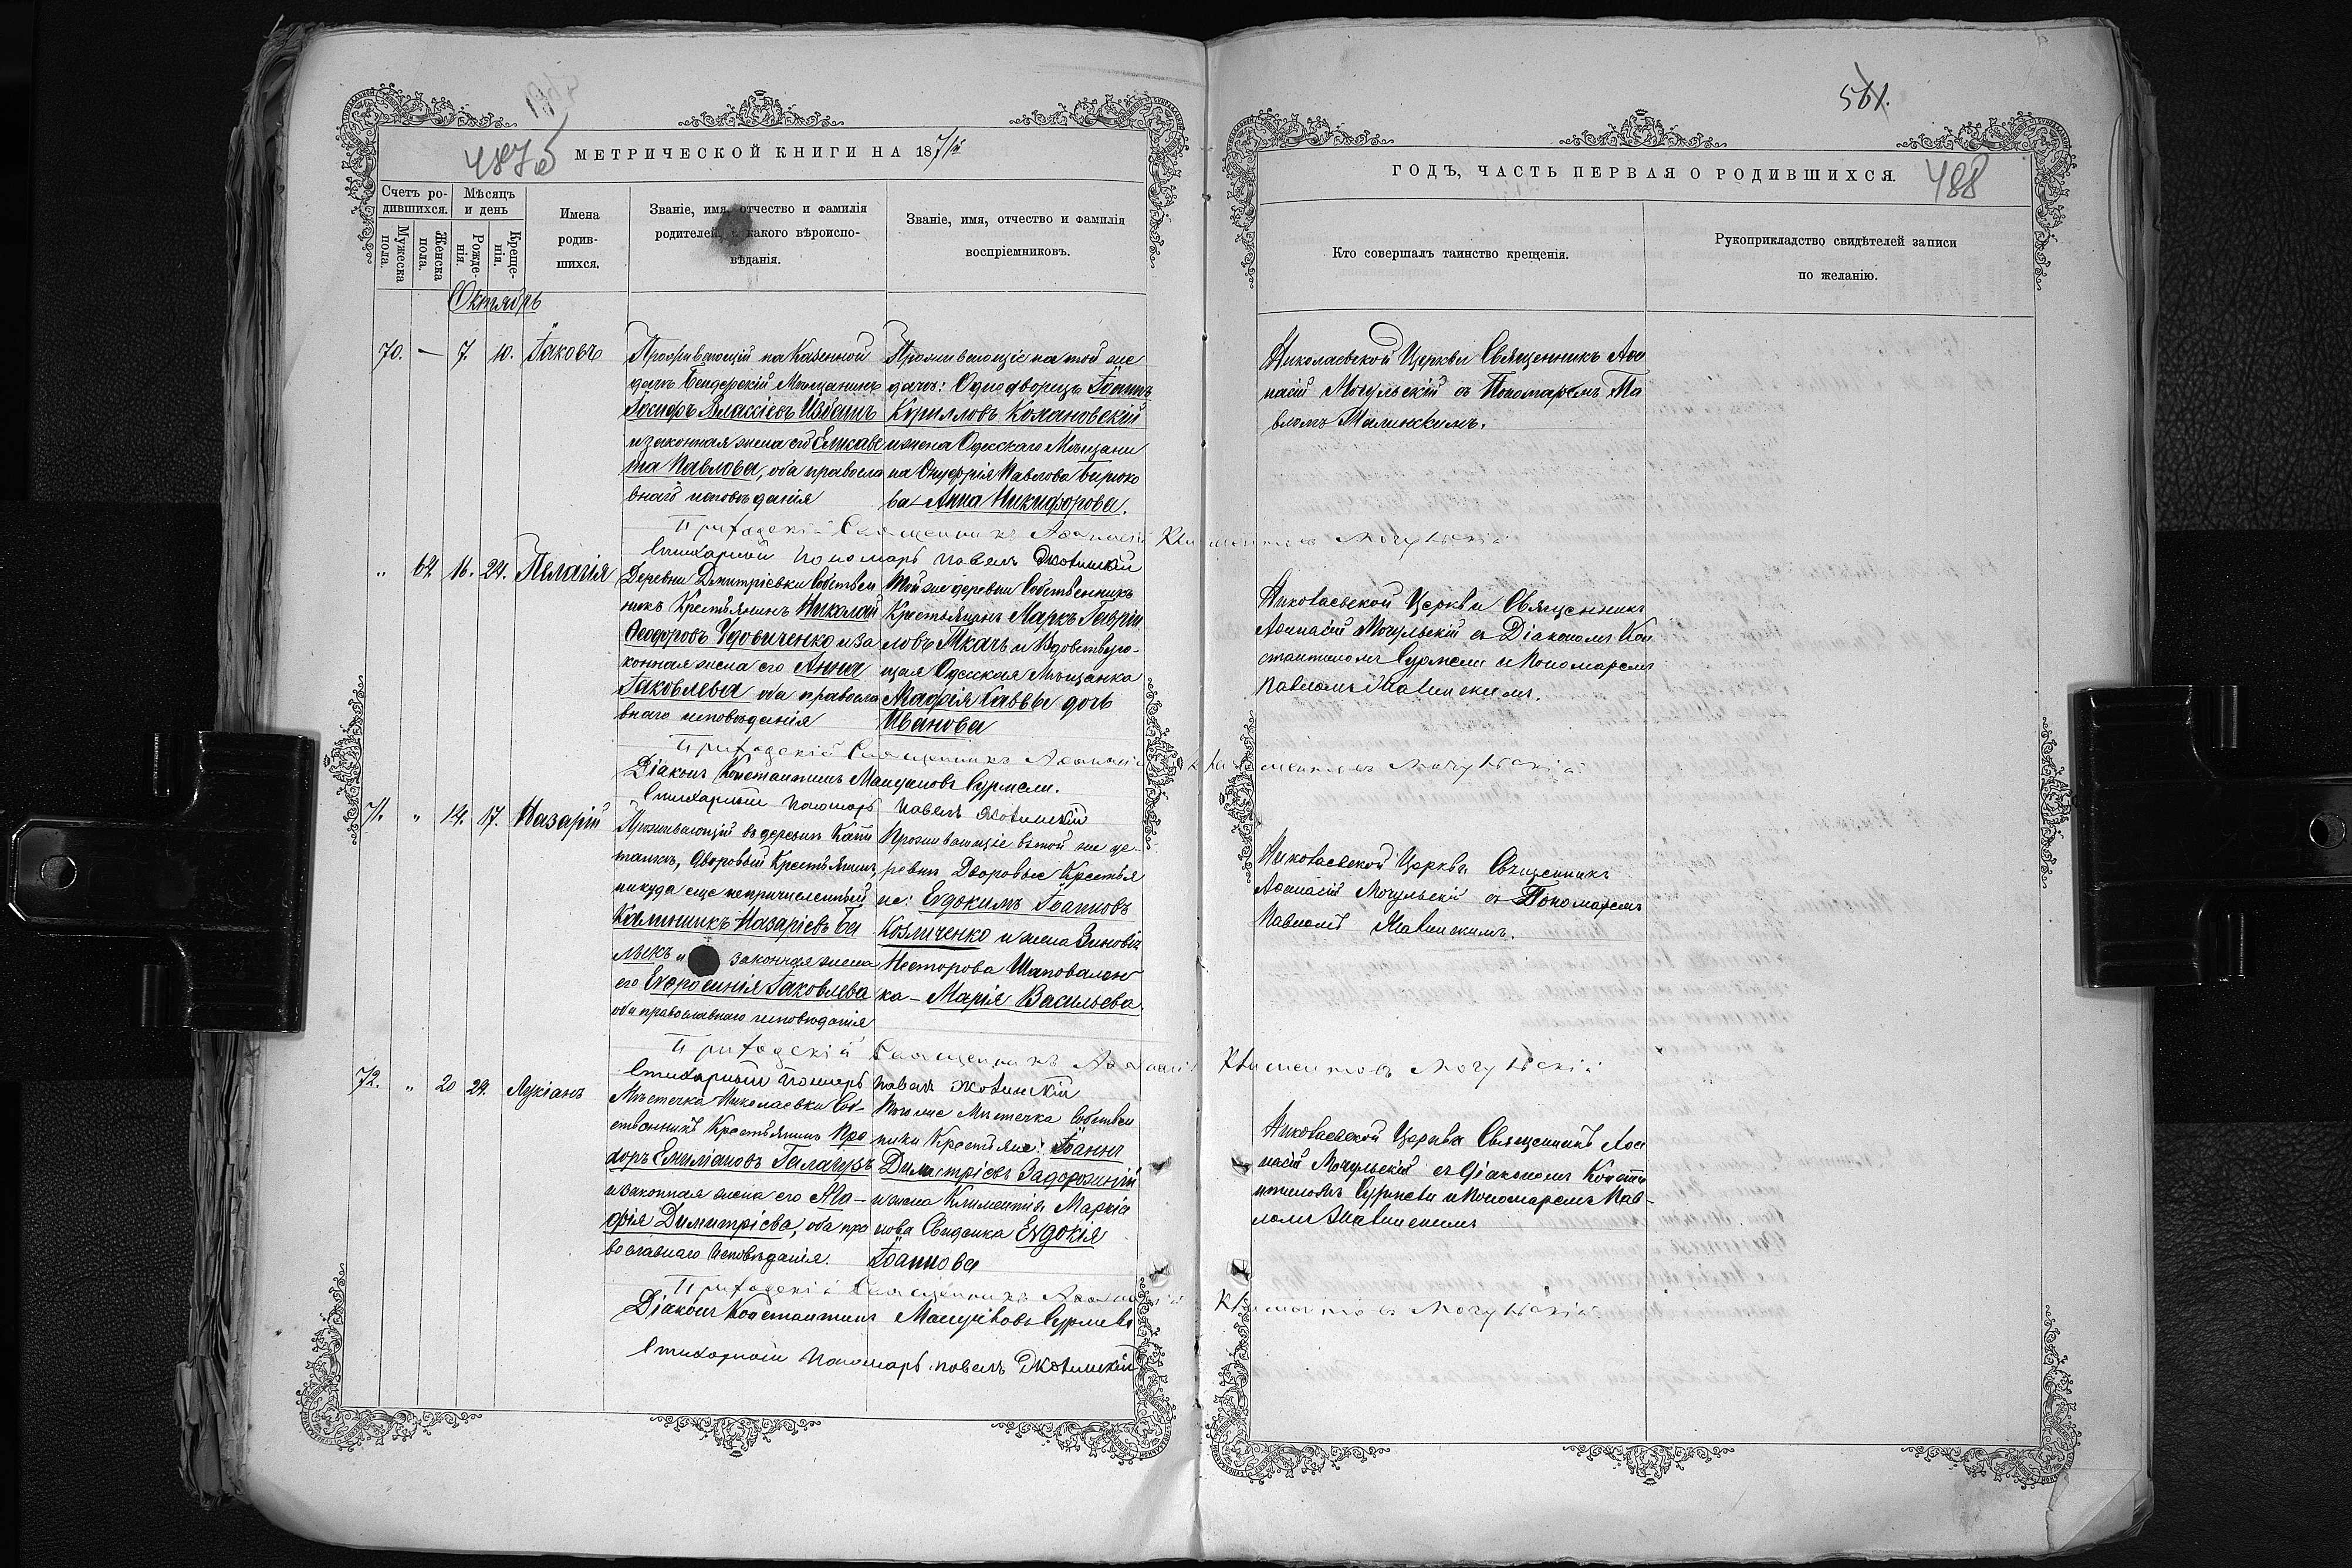 561.
487об
МЕТРИЧЕСКОЙ КНИГИ НА 187
ГОДЪ, ЧАСТЬ ПЕРВАЯ О РОДИВШИХСЯ.
488
Счетъ ро-
дившихся.
Мужеска
пола.
Женска
пола.
Мѣсяцъ
и день
Рожде-
нія.
Креще-
нія.
Имена
родив-
шихся.
Званіе, имя, отчество и фамилія
родителей, какого вѣроиспо-
вѣданія.
Званіе, имя, отчество и фамилія
воспріемниковъ.
Кто совершалъ таинство крещенія.
Рукоприкладство свидѣтелей записи
по желанію.
Октябрь
70. — 7. 10. Іаковъ
Проживающій на Казенной
дачѣ Бендерскій Мѣщанинъ
Іосифъ Власіевъ Избашъ
и законная жена его Елисаве
та Павлова, оба правосла
внаго исповѣданія
Проживающіе на той же
дачѣ: Однодворецъ Іоаннъ
Кирилловъ Кохановскій
и жена Одесскаго Мѣщани
на Онуфрія Павлова Бирюко
ва Анна Никифорова.
Николаевской Церкви Священникъ Афа
насій Могульскій съ Пономаремъ Па
вломъ
Приходскій Священникъ Афанасій Климентовъ Могульскій
Стихарный Пономарь Павелъ
" 62 16. 24. Пелагія
Деревни Дмитріевки Собствен
никъ Крестьянинъ Николай
Ѳеодоровъ Удовиченко и за
конная жена его Анна
Іаковлева оба правосла
внаго исповѣданія
Той же деревни Собственникъ
Крестьянинъ Маркъ Гаврі
ловъ Ткачъ и Вдовствую-
щая Одесская Мѣщанка
Марія Саввы дочь
Иванова
Николаевской Церкви Священникъ
Афанасій Могульскій съ Діакономъ Кон
стантиномъ Сурмели и Пономаремъ
Павломъ
Приходскій Священникъ Афанасій Климентовъ Могульскій
Діаконъ Константинъ Сурмели.
Стихарный Пономарь Павелъ
71. " 14. 17. Назарій
Проживающій въ деревнѣ Капи
танкѣ, Дворовый Крестьянинъ,
никуда еще непричисленный
Калинникъ Назаріевъ Бѣ
лыкъ и законная жена
его Евфросинія Іаковлева
оба православнаго исповѣданія
Проживающіе въ той же де-
ревнѣ Дворовые Крестья
не: Евдокимъ Іоанновъ
Козличенко и жена Зиновія
Несторова Шаповален
ка — Марія Васильева.
Николаевской Церкви Священникъ
Афанасій Могульскій съ Пономаремъ
Павломъ
Приходскій Священникъ Афанасій Климентовъ Могульскій
Стихарный Пономарь Павелъ
72. " 20 24. Лукіанъ
Мѣстечка Николаевки Соб-
ственникъ Крестьянинъ Про
хоръ Емиліановъ Галагуръ
и законная жена его Ага-
фія Димитріева, оба пра
вославнаго Исповѣданія.
Того же Мѣстечка Собствен
ники Крестьяне: Іоаннъ
Димитріевъ Задорожній
и жена Климентія Маркіа
нова Свиданка Евдокія
Іоаннова
Николаевской Церкви Священникъ Афа
насій Могульскій съ Діакономъ Конста
нтиномъ Сурмели и Пономаремъ Пав-
ломъ
Приходскій Священникъ Афанасій Климентовъ Могульскій
Діаконъ Константинъ Сурмели
Стихарный Пономарь Павелъ